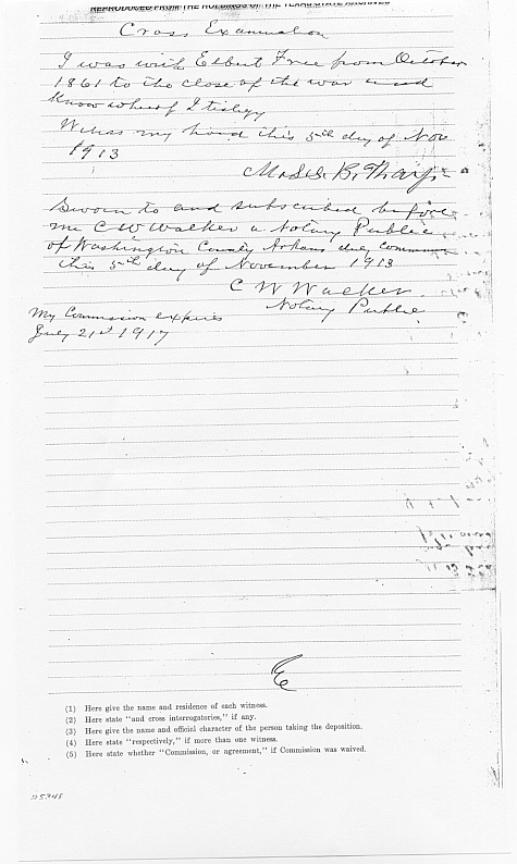 REPRODUCED FROM THE HOLDINGS OF THE TEXAS STATE ARCHIVES
Cross Examination
I was with Elbert Free from October
1861 to the close of the war and
Know whereof I
Witness my hand this 5th day of Nov
1913
B. Tharp
Sworn to and subscribed before
me C W Walker a Notary Public
of Washington County Arkans duly
this 5th day of November 1913
C W Walker
Notary Public
My Commission expires
July 21st 1917
(1) Here give the name and residence of each witness.
(2) Here state "and cross interrogatories," if any.
(3) Here give the name and official character of the person taking the deposition.
(4) Here state "respectively," if more than one witness.
(5) Here state whether "Commission, or agreement," if Commission was waived.